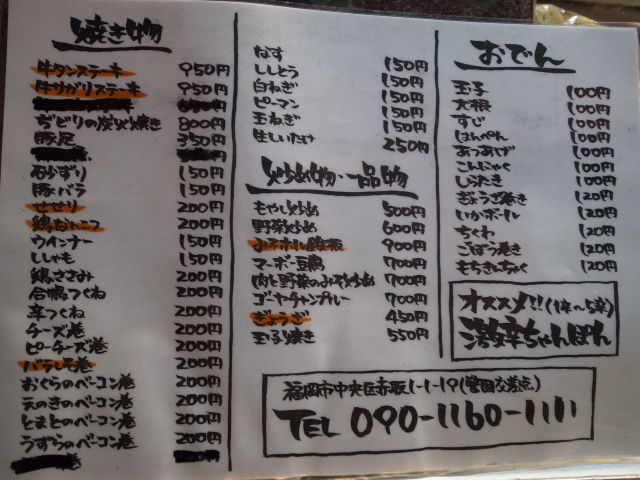 焼き物
牛タンステーキ 950円
牛サガリステーキ 950円
ぢどりの炭火焼き 800円
豚足 350円
砂ずり 150円
豚バラ 150円
せせり 200円
鶏なんこつ 200円
ウインナー 150円
ししゃも 150円
鶏ささみ 200円
合鴨つくね 200円
辛つくね 200円
チーズ巻 200円
ピーチーズ巻 200円
バラしそ巻 200円
おくらのベーコン巻 200円
えのきのベーコン巻 200円
とまとのベーコン巻 200円
うずらのベーコン巻 200円
なす 150円
ししとう 150円
白ねぎ 150円
ピーマン 150円
玉ねぎ 150円
生しいたけ 250円
炒め物・一品物
もやし炒め 500円
野菜炒め 600円
みそホルモン鉄板 900円
マーボー豆腐 700円
肉と野菜のみそ炒め 700円
ゴーヤチャンプルー 700円
ぎょうざ 450円
玉子焼き 550円
おでん
玉子 100円
大根 100円
すじ 100円
はんぺん 100円
あつあげ 100円
こんにゃく 100円
しらたき 100円
ぎょうざ巻き 120円
いかボール 120円
ちくわ 120円
ごぼう巻き 120円
もちきんちゃく 120円
オススメ!!(1辛〜5辛)
激辛ちゃんぽん
福岡市中央区赤坂1-1-19(警固交差点)
TEL 090-1160-1111